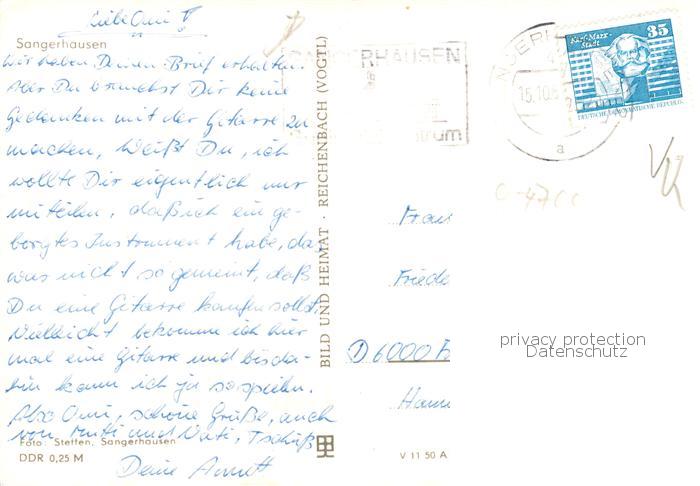 Liebe Omi!
Sangerhausen
Wir haben Deinen Brief erhalten.
Aber Du brauchst Dir keine
Gedanken mit der Gitarre zu
machen, Weißt Du, ich
wollte Dir eigentlich nur
mitteilen, daß ich ein ge-
borgtes Instrument habe, das
war nicht so gemeint, daß
Du eine Gitarre kaufen sollst.
Vielleicht bekomme ich hier
mal eine Gitarre und bisda-
hin kann ich ja so spielen.
Also Omi, schöne Grüße, auch
von Mutti und Vati, Tschüß
Foto: Steffen, Sangerhausen
DDR 0,25 M
Deine Annett
BILD UND HEIMAT · REICHENBACH (VOGTL)
V 11 50 A
SANGERHAUSEN
15.10.8
a
Karl-Marx-
Stadt
35
DEUTSCHE DEMOKRATISCHE REPUBLIK
Frau
Friede
D 6000 F
Hann
privacy protection
Datenschutz